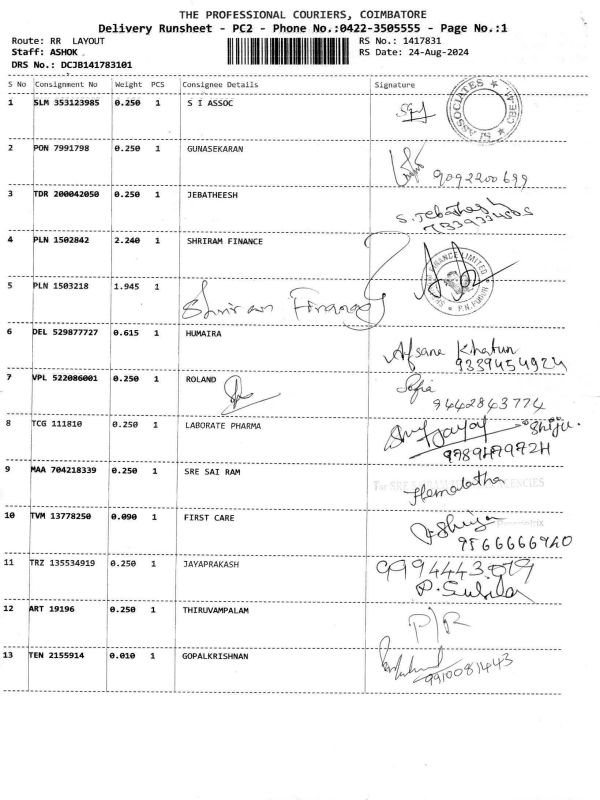 THE PROFESSIONAL COURIERS, COIMBATORE
Delivery Runsheet - PC2 - Phone No.:0422-3505555 - Page No.:1
Route: RR LAYOUT RS No.: 1417831
Staff: ASHOK RS Date: 24-Aug-2024
DRS No.: DCJB141783101
S No Consignment No Weight PCS Consignee Details Signature
1 SLM 353123985 0.250 1 S I ASSOC
ASSOCIATES
2 PON 7991798 0.250 1 GUNASEKARAN
9092200699
3 TDR 200042050 0.250 1 JEBATHEESH
S. Jebathas
4 PLN 1502842 2.240 1 SHRIRAM FINANCE
FINANCE LIMITED
5 PLN 1503218 1.945 1
Shriram Finance
6 DEL 529877727 0.615 1 HUMAIRA
Afsana Khatun
9339454924
7 VPL 522086001 0.250 1 ROLAND
Sofia
9442843774
8 TCG 111810 0.250 1 LABORATE PHARMA
Shiju
9789479724
9 MAA 704218339 0.250 1 SRE SAI RAM
Hemalatha
10 TVM 13778250 0.090 1 FIRST CARE
9566666940
11 TRZ 135534919 0.250 1 JAYAPRAKASH
9994443019
12 ART 19196 0.250 1 THIRUVAMPALAM
P/R
13 TEN 2155914 0.010 1 GOPALKRISHNAN
9910081443